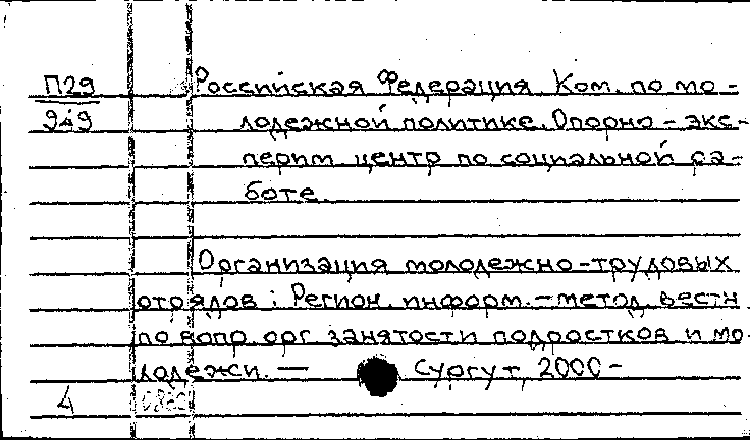 П29 Российская Федерация. Ком. по мо-
949 лодежной политике. Опорно-экс-
перим. центр по социальной ра-
боте.
Организация молодежно-трудовых
отрядов : Регион. информ.-метод. вестн.
по вопр. орг. занятости подростков и мо-
лодежи. — Сургут, 2000-
4